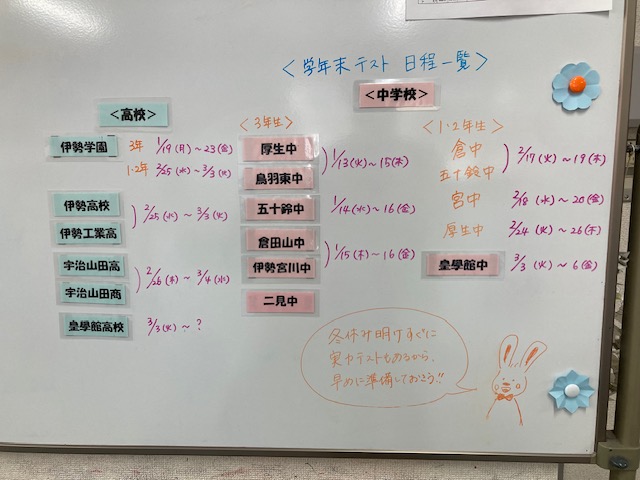 ＜学年末テスト 日程一覧＞
＜高校＞
伊勢学園 3年 1/19(月)～23(金)
1・2年 2/25(水)～3/3(火)
伊勢高校
伊勢工業高
) 2/25(水)～3/3(火)
宇治山田高
宇治山田商
) 2/26(木)～3/4(水)
皇學館高校 3/3(火)～?
＜中学校＞
＜3年生＞
厚生中
鳥羽東中
) 1/13(火)～15(木)
五十鈴中 1/14(水)～16(金)
倉田山中
伊勢宮川中
) 1/15(木)～16(金)
二見中
＜1・2年生＞
倉中
五十鈴中
) 2/17(火)～19(木)
宮中 2/18(水)～20(金)
厚生中 2/24(火)～26(木)
皇學館中 3/3(火)～6(金)
冬休み明けすぐに
実力テストもあるから、
早めに準備しておこう!!